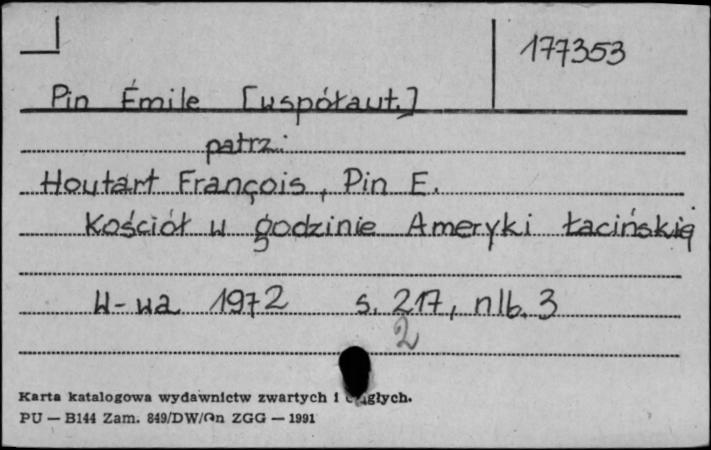 177353
Pin Émile [współaut.]
patrz:
Houtart François, Pin E.
Kościół w godzinie Ameryki Łacińskiej
W-wa 1972 s. 217, nlb. 3
2
Karta katalogowa wydawnictw zwartych i ciągłych.
PU — B144 Zam. 849/DW/On ZGG — 1991